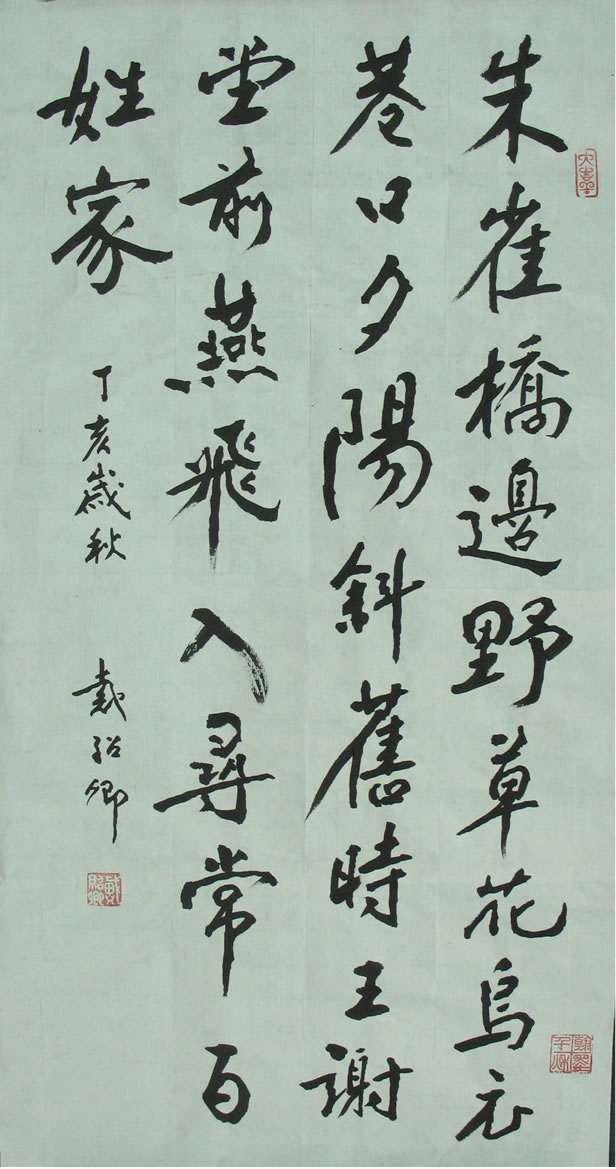 朱雀橋邊野草花烏衣
巷口夕陽斜舊時王謝
堂前燕飛入尋常百
姓家
丁亥歲秋
戴紹卿